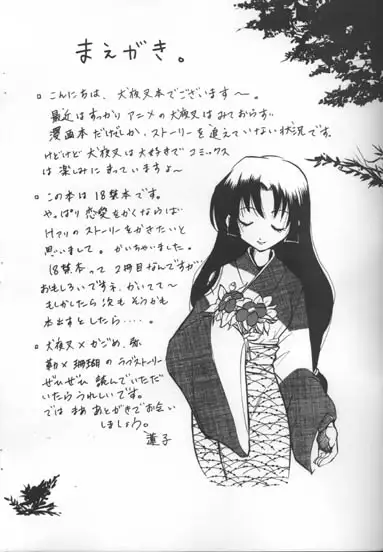 まえがき。
□ こんにちは、犬夜叉本でございます〜。
最近はすっかりアニメの犬夜叉はみておらず
漫画本だけだしか、ストーリーを追えていない状況です。
けどけど犬夜叉は大好きでコミックス
は楽しみにまっていますよ〜
□ この本は18禁本です。
やっぱり恋愛をかくならば
Hアリのストーリーをかきたいと
思いまして。かいちゃいました。
18禁本って2冊目なんですが
おもしろいですネ、かいてて〜
もしかしたら次も そうかも
本出すとしたら・・・・。
□ 犬夜叉×かごめ、弥
勒×珊瑚のラブストーリー
ぜひぜひ読んでいただ
いたらうれしいです。
では まあ あとがきでお会い
しましょう。
蓮子